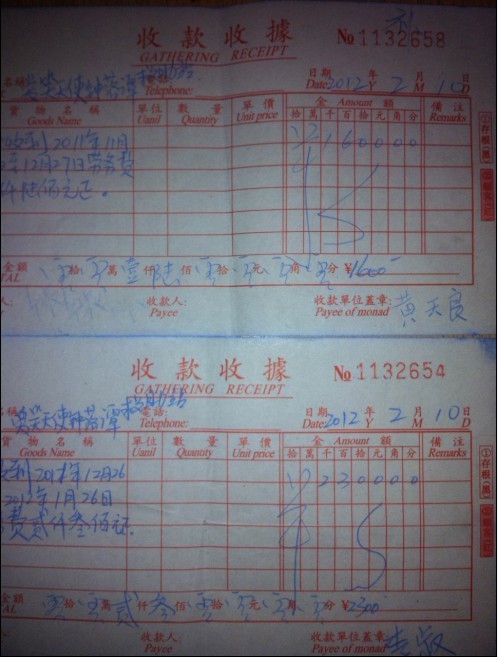 补
收款收據 №1132658
GATHERING RECEIPT
名稱 電話: 日期 2012年2月10日
Telephone: Date: Y M D
貨物名稱 單位 數量 單價 金 Amount 額 備注
Goods Name Uanil Quantity Unit price 拾萬千百拾元角分 Remarks
2011年11月 ¥160000
12月27日劳务费
仟陆佰元正。
①存根(黑)
金額 零拾零萬壹仟陆佰零拾零元零角零分 ¥1600
TAL
收款人: 收款單位蓋章: 黄天良
Payee Payee of monad
收款收據 №1132654
GATHERING RECEIPT
稱 電話: 日期 2012年2月10日
Telephone: Date: Y M D
貨物名稱 單位 數量 單價 金 Amount 額 備注
Goods Name Uanil Quantity Unit price 拾萬千百拾元角分 Remarks
2011年12月26 ¥230000
2012年1月26日
费贰仟叁佰元正
①存根(黑)
金額 零拾零萬贰仟叁佰零拾零元零角零分 ¥2300
TAL
收款人: 收款單位蓋章:
Payee Payee of monad